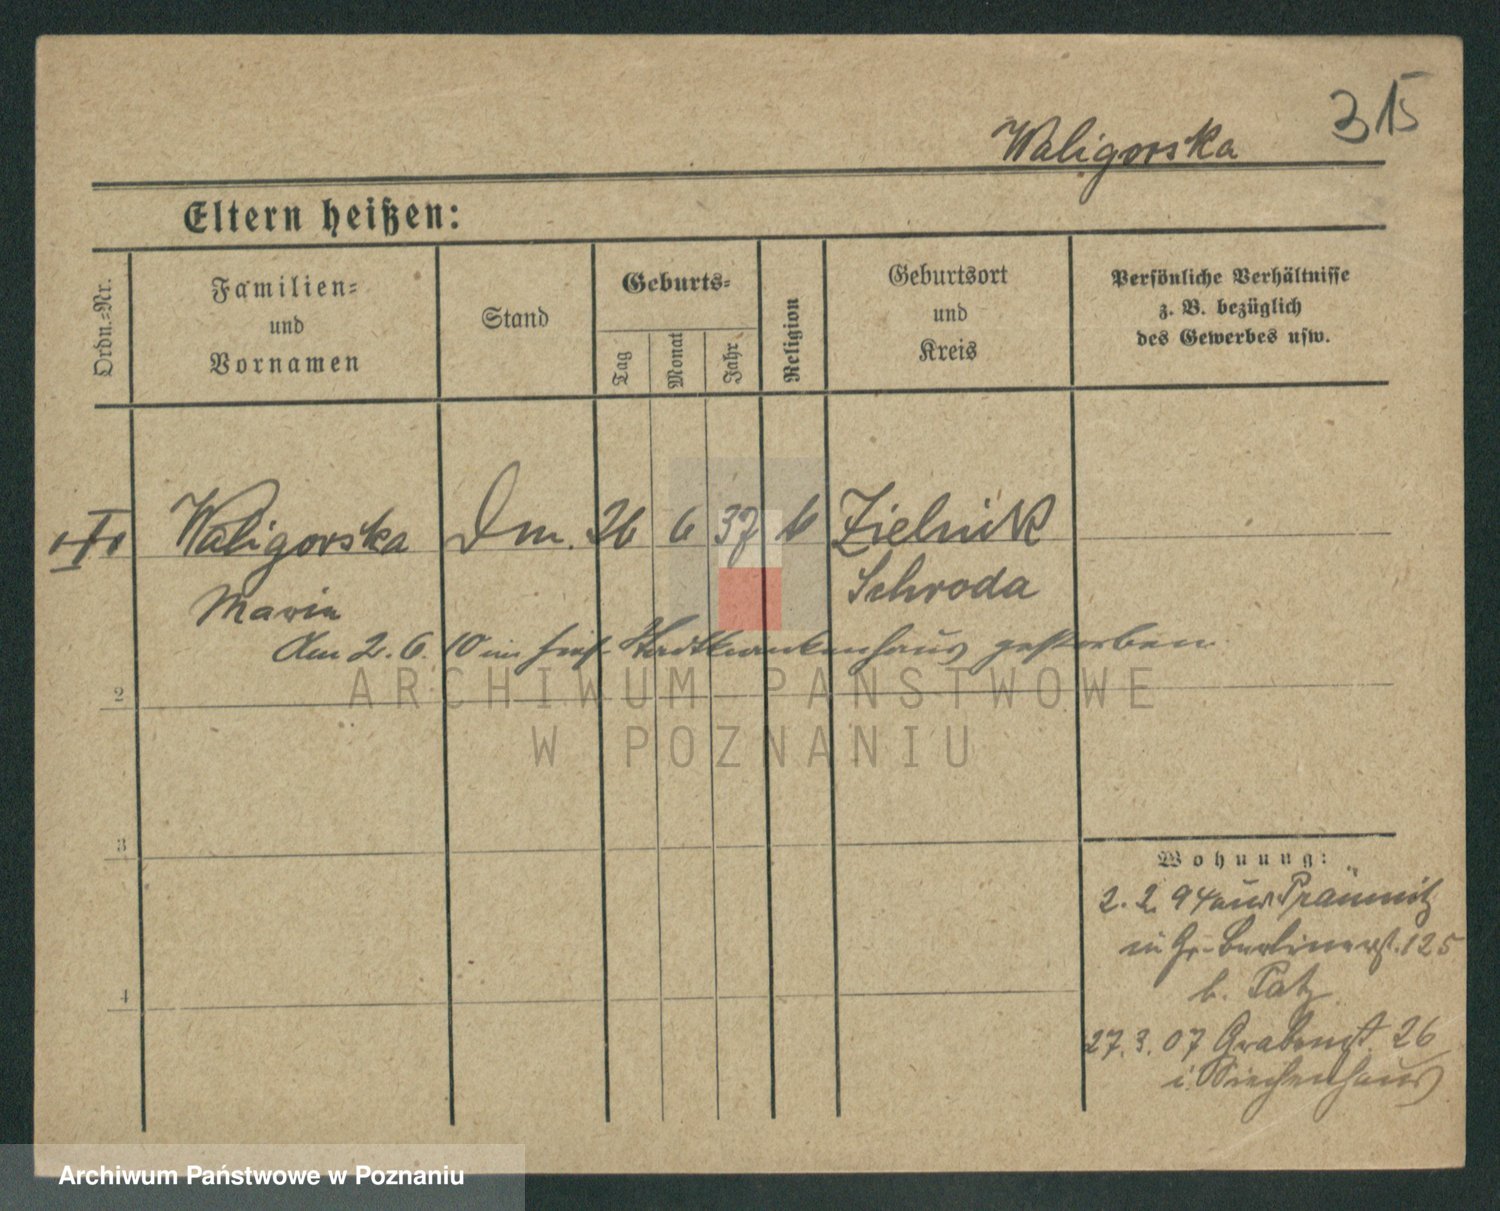 315
Waligorska
Eltern heißen:
Ordn.-Nr.
Familien-
und
Vornamen
Stand
Geburts-
Tag
Monat
Jahr
Religion
Geburtsort
und
Kreis
Persönliche Verhältnisse
z. B. bezüglich
des Gewerbes usw.
Waligorska Dm. 26 6 37 k Zielnik
Maria Schroda
Am 2. 6. 10 im hies. Stadtkrankenhaus gestorben.
2
3
4
Wohnung:
2. 2. 94 aus
in Gr. Berlinerst. 125
b. Patz
27. 3. 07 Grabenst. 26
i. Siechenhaus
ARCHIWUM PAŃSTWOWE
W POZNANIU
Archiwum Państwowe w Poznaniu